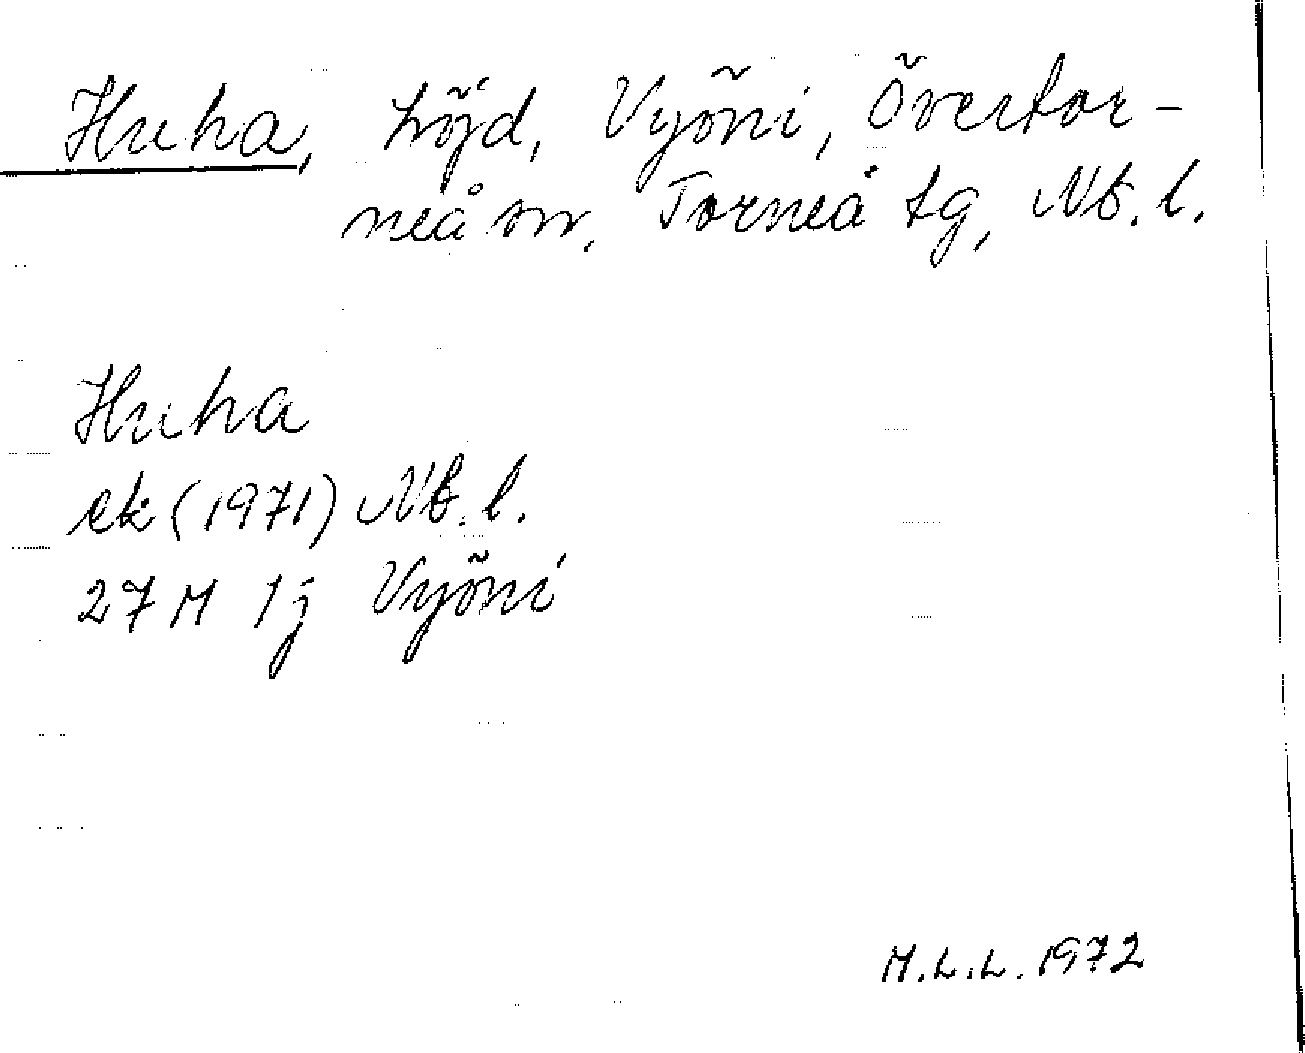 Huha, höjd, Vyöni, Övertor-
neå sn, Torneå tg, Nb. l.
Huha
ek (1971) Nb. l.
27 M 1j Vyöni
M.L.L. 1972